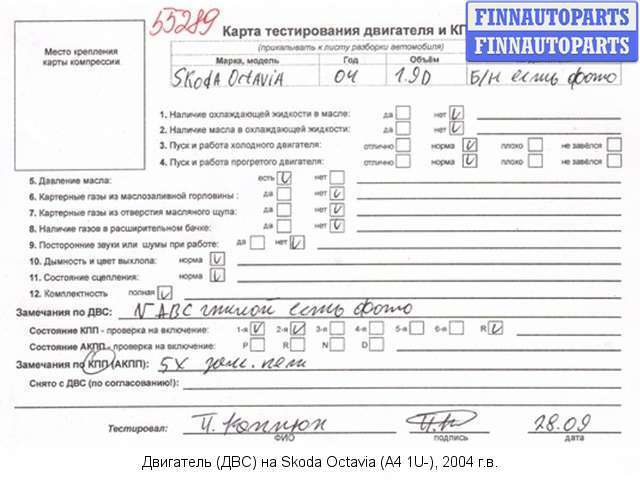 55289
Карта тестирования двигателя и КП
FINNAUTOPARTS
FINNAUTOPARTS
(прикалывать к листу разборки автомобиля)
Место крепления
карты компрессии
Марка, модель Год Объём
Skoda Octavia 04 1.9D Б/Н есть фото
1. Наличие охлаждающей жидкости в масле: да нет V
2. Наличие масла в охлаждающей жидкости: да нет V
3. Пуск и работа холодного двигателя: отлично норма V плохо не завёлся
4. Пуск и работа прогретого двигателя: отлично норма V плохо не завёлся
5. Давление масла: есть V нет
6. Картерные газы из маслозаливной горловины : да нет V
7. Картерные газы из отверстия масляного щупа: да нет V
8. Наличие газов в расширительном бачке: да нет V
9. Посторонние звуки или шумы при работе: да нет V
10. Дымность и цвет выхлопа: норма V
11. Состояние сцепления: норма V
12. Комплектность полная V
Замечания по ДВС: N ABC гнилой есть фото
Состояние КПП - проверка на включение: 1-я V 2-я V 3-я 4-я 5-я 6-я R V
Состояние АКПП - проверка на включение: P R N D
Замечания по КПП (АКПП): 5X
Снято с ДВС (по согласованию!):
Тестировал: 28.09
ФИО подпись дата
Двигатель (ДВС) на Skoda Octavia (A4 1U-), 2004 г.в.